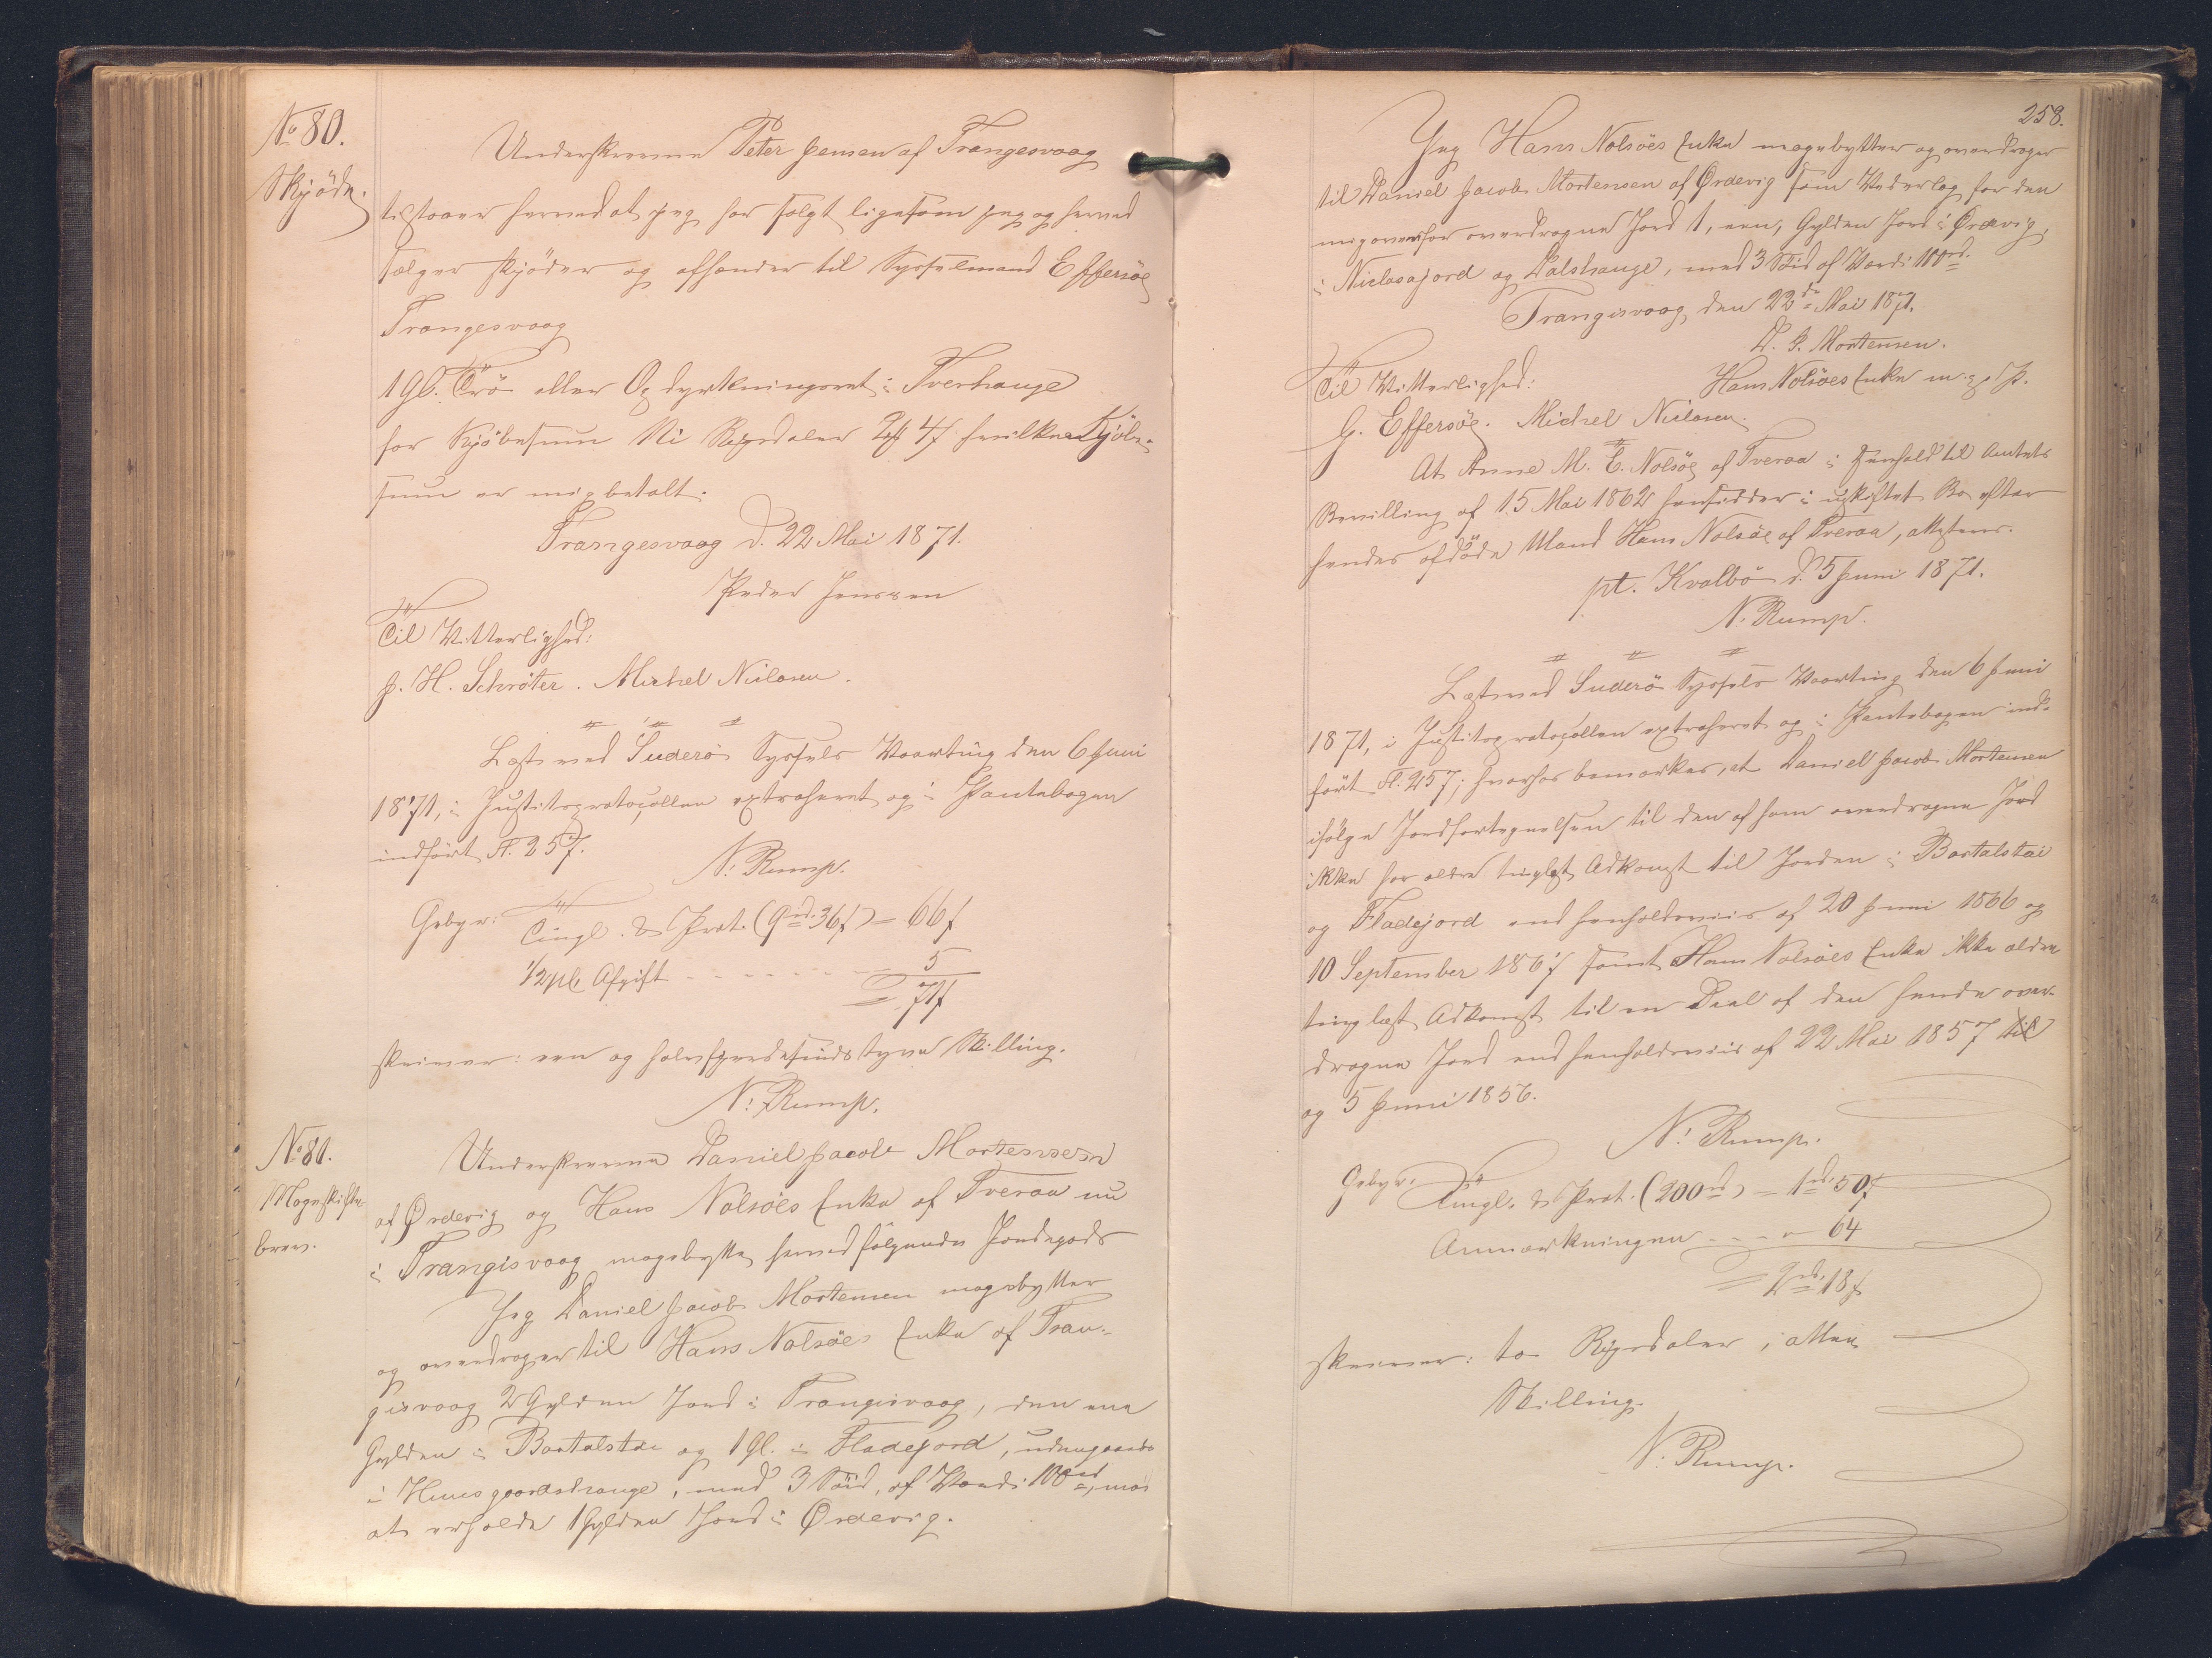 No 80.
Skjöde.
Underskrevne Peter Jensen af Trangesvaag
tilstaaer herved at jeg har solgt ligesom jeg og herved
sælger skjöder og afhænder til Sysselmand Effersöe
Trangesvaag
1 Gl. Trö eller Opdyrkningsret i Tverhauge
for Kjöbesum Ni Rigsdaler hvilken Kjöbe-
sum er mig betalt.
Trangesvaag d. 22 Mai 1871.
Peder Jenssen
Til Vitterlighed:
J. H. Schröter. Michel Nielsen.
Læst ved Suderö Syssels Vaarting den 6 Juni
1871, i Justitsprotocollen extraheret og i Pantebogen
indfört Fl. 257.
N. Rump.
Gebyr: Tingl. & Prot. (9rd. 36ſ) = 66ſ
1/2 pC. Afgift - - - - - - 5
= 71ſ
skriver: een og halvfjerdesindstyve Skilling.
N. Rump.
No 81.
Mageskifte-
brev.
Underskrevne Daniel Jacob Mortensen
af Ördevig og Hans Nolsöes Enke af Tveraa nu
i Trangisvaag magebytte herved fölgende Jordegods
Jeg Daniel Jacob Mortensen magebytter
og overdrager til Hans Nolsöes Enke af Tran-
gisvaag 2 Gylden Jord i Trangisvaag, den ene
Gylden i Bartalstai og 1 Gl. i Fladejord, udengaards
i Huusgaardshauge, med 3 Söid, af Værdi 100rd, mod
at erholde 1 Gylden Jord i Ördevig.
258.
Jeg Hans Nolsöes Enke magebytter og overdrager
til Daniel Jacob Mortensen af Ördevig som Vederlag for den
mig ovenfor overdragne Jord 1, een, Gylden Jord i Ördevig,
i Niclasajord og Dalshauge, med 3 Söid af Værdi 100rd.
Trangisvaag, den 22de Mai 1871.
D. J. Mortensen.
Til Vitterlighed: Hans Nolsöes Enke m. p. P.
G. Effersöe. Michel Nielsen.
At Anne M. E. Nolsöe af Tveraa i Henhold til Amtets
Bevilling af 15 Mai 1862 hensidder i uskiftet Bo efter
hendes afdöde Mand Hans Nolsöe af Tveraa, attesteres.
pt. Kvalbö d. 5 Juni 1871.
N. Rump.
Læst ved Suderö Syssels Vaarting den 6 Juni
1871, i Justitsprotocollen extraheret og i Pantebogen ind-
fört Fl. 257; hvorhos bemærkes, at Daniel Jacob Mortensen
ifölge Jordfortegnelsen til den af ham overdragne Jord
ikke har ældre tinglæst Adkomst til Jorden i Bartalstai
og Fladejord end henholdsviis af 20 Juni 1866 og
10 September 1867 samt Hans Nolsöes Enke ikke ældre
tinglæst Adkomst til en Deel af den hende over-
dragne Jord end henholdsviis af 22 Mai 1857 til
og 5 Juni 1856.
N. Rump.
Gebyr: Tingl. & Prot. (200rd) = 1rd. 50ſ
Anmærkningen - - - - 64
= 2rd. 18ſ
skriver: to Rigsdaler, atten
Skilling.
N. Rump.